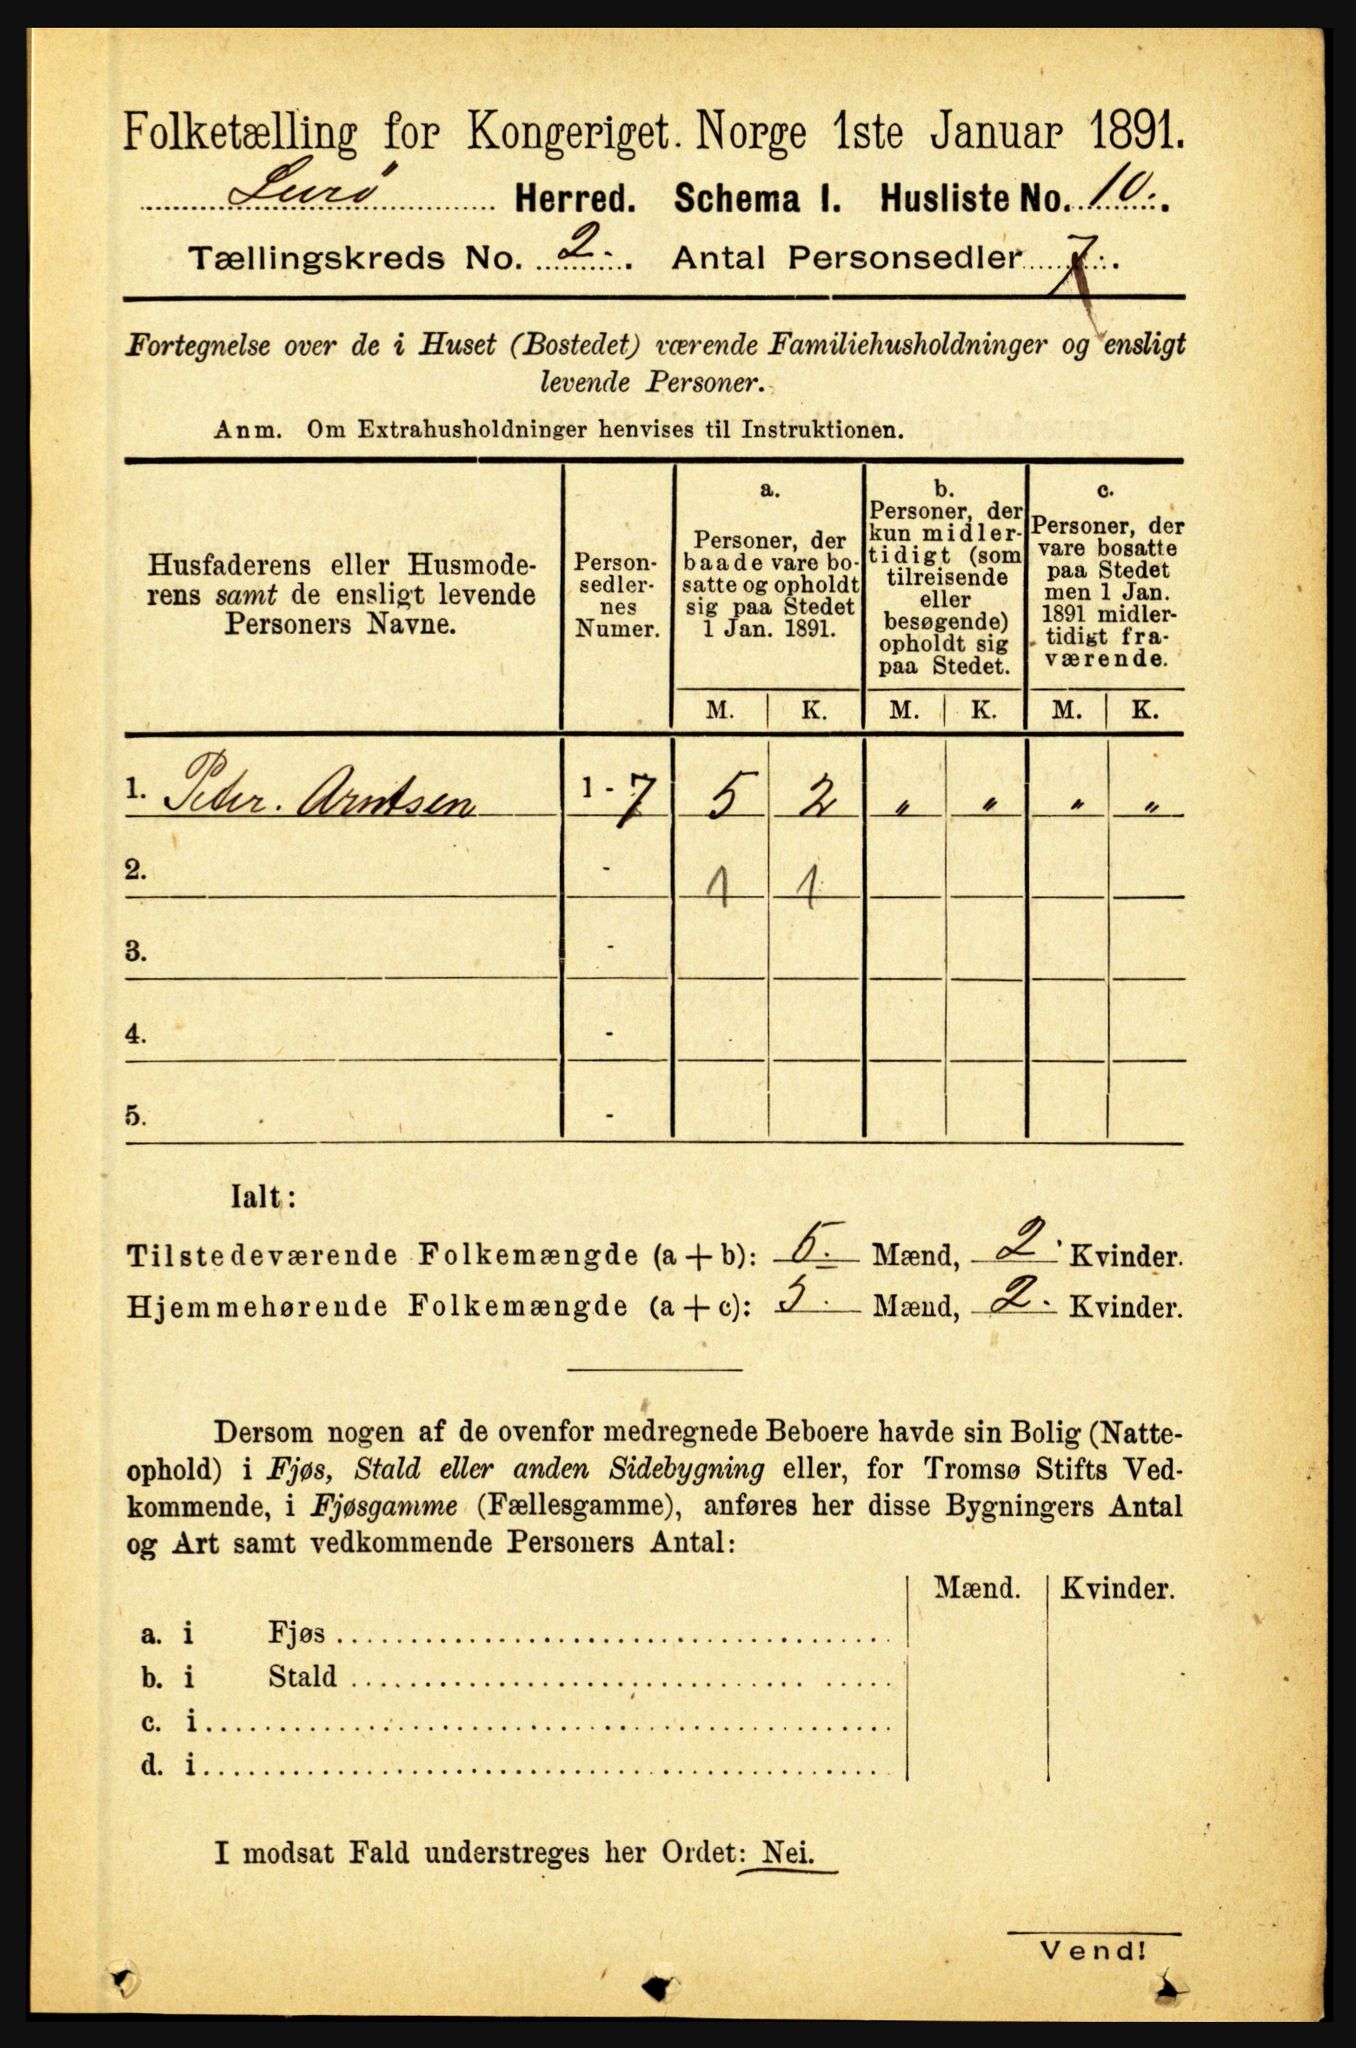 Folketælling for Kongeriget. Norge 1ste Januar 1891.
Lurø Herred. Schema I. Husliste No. 10.
Tællingskreds No. 2. Antal Personsedler 7.
Fortegnelse over de i Huset (Bostedet) værende Familiehusholdninger og ensligt
levende Personer.
Anm. Om Extrahusholdninger henvises til Instruktionen.
Husfaderens eller Husmode-
rens samt de ensligt levende
Personers Navne.
Person-
sedler-
nes
Numer.
a.
Personer, der
baade vare bo-
satte og opholdt
sig paa Stedet
1 Jan. 1891.
b.
Personer, der
kun midler-
tidigt (som
tilreisende
eller
besøgende)
opholdt sig
paa Stedet.
c.
Personer, der
vare bosatte
paa Stedet
men 1 Jan.
1891 midler-
tidigt fra-
værende.
M. K. M. K. M. K.
1. Peter. Arntsen 1 - 7 5 2 " " " "
2. - 1 1
3. -
4. -
5. -
Ialt:
Tilstedeværende Folkemængde (a + b): 5. Mænd, 2. Kvinder.
Hjemmehørende Folkemængde (a + c): 5. Mænd, 2. Kvinder.
Dersom nogen af de ovenfor medregnede Beboere havde sin Bolig (Natte-
ophold) i Fjøs, Stald eller anden Sidebygning eller, for Tromsø Stifts Ved-
kommende, i Fjøsgamme (Fællesgamme), anføres her disse Bygningers Antal
og Art samt vedkommende Personers Antal:
Mænd. Kvinder.
a. i Fjøs
b. i Stald
c. i
d. i
I modsat Fald understreges her Ordet: Nei.
Vend!